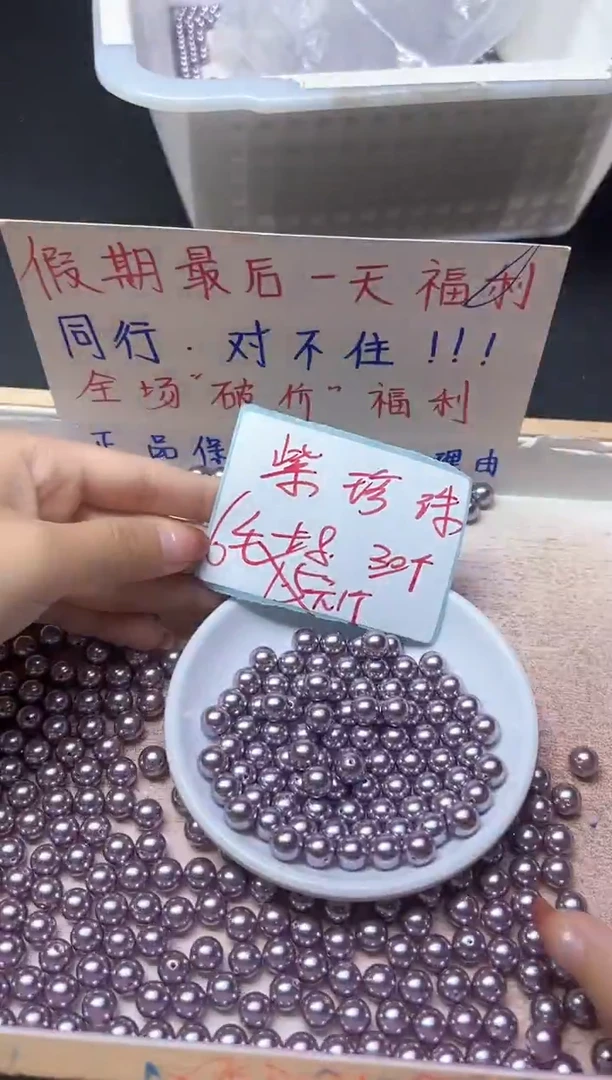 假期最后一天福利
同行.对不住!!!
全场"破价"福利
正品保 理由
紫珍珠
30个
5元1个